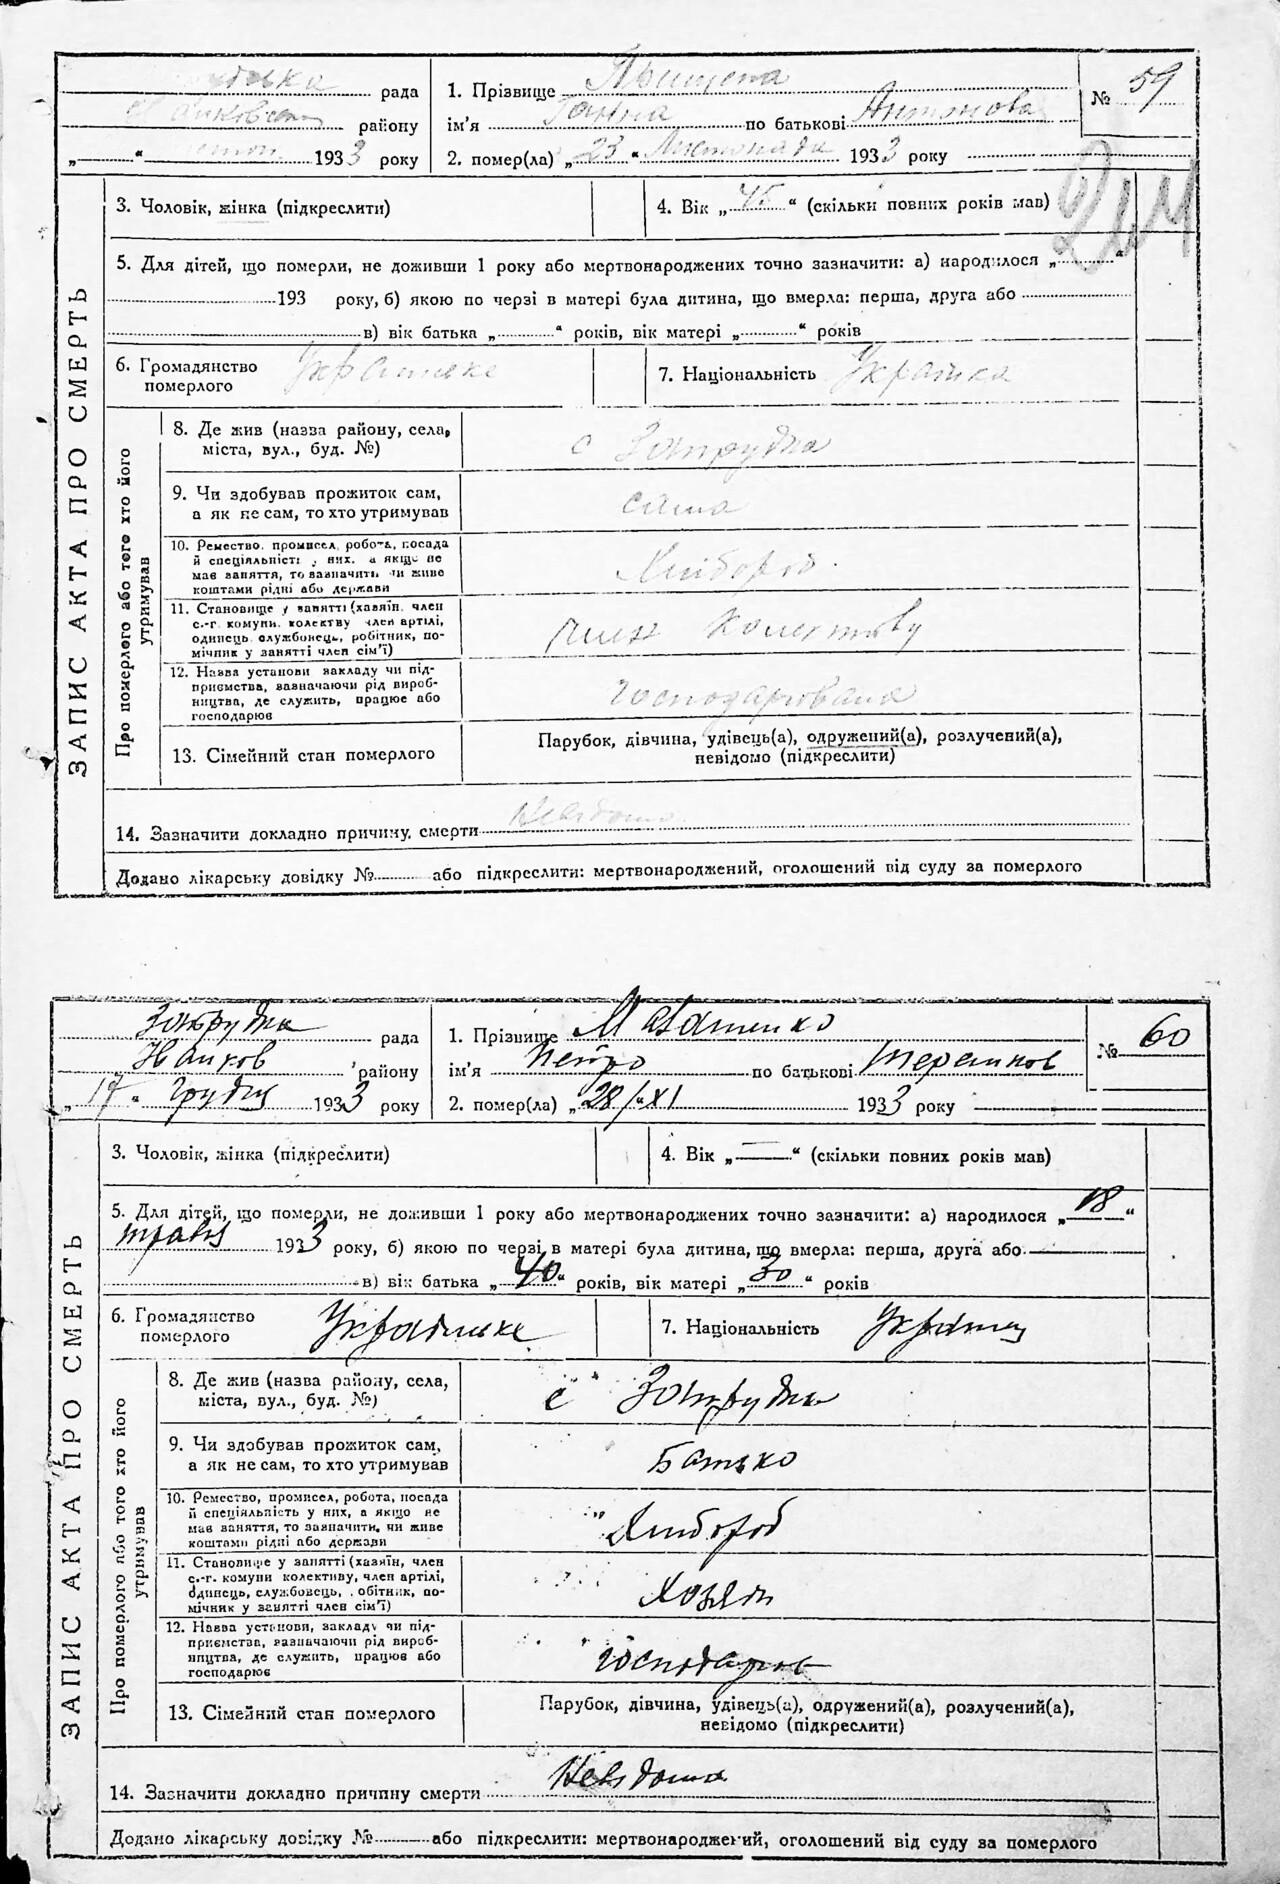 ЗАПИС АКТА ПРО СМЕРТЬ
рада
району
1933 року
1. Прізвище
ім'я Ганна по батькові Антонова
2. помер(ла) „23“ Листопада 1933 року
№ 59
3. Чоловік, жінка (підкреслити)
4. Вік „45“ (скільки повних років мав)
5. Для дітей, що померли, не доживши 1 року або мертвонароджених точно зазначити: а) народилося „ “
193 року, б) якою по черзі в матері була дитина, що вмерла: перша, друга або
в) вік батька „ “ років, вік матері „ “ років
6. Громадянство померлого Українське
7. Національність Українка
Про померлого або того хто його утримував
8. Де жив (назва району, села, міста, вул., буд. №) с Затрудка
9. Чи здобував прожиток сам, а як не сам, то хто утримував сама
10. Ремество, промисел, робота, посада й спеціяльність у них, а якщо не має заняття, то зазначить чи живе коштами рідні або держави Хлібороб
11. Становище у занятті (хазяїн, член с.-г. комуни, колективу член артілі, одинець, службовець, робітник, помічник у занятті член сім'ї) член колективу
12. Назва установи закладу чи підприємства, зазначаючи рід виробництва, де служить, працює або господарює господарювала
13. Сімейний стан померлого Парубок, дівчина, удівець(а), одружений(а), розлучений(а), невідомо (підкреслити)
14. Зазначити докладно причину смерти Невідома
Додано лікарську довідку № або підкреслити: мертвонароджений, оголошений від суду за померлого
ЗАПИС АКТА ПРО СМЕРТЬ
Затрудка рада
району
„17“ Грудня 1933 року
1. Прізвище
ім'я Петро по батькові
2. помер(ла) „28/“XI 1933 року
№ 60
3. Чоловік, жінка (підкреслити)
4. Вік „—“ (скільки повних років мав)
5. Для дітей, що померли, не доживши 1 року або мертвонароджених точно зазначити: а) народилося „18“
травня 1933 року, б) якою по черзі в матері була дитина, що вмерла: перша, друга або
в) вік батька „40“ років, вік матері „30“ років
6. Громадянство померлого Українське
7. Національність Українец
Про померлого або того хто його утримував
8. Де жив (назва району, села, міста, вул., буд. №) с Затрудка
9. Чи здобував прожиток сам, а як не сам, то хто утримував Батько
10. Ремество, промисел, робота, посада й спеціяльність у них, а якщо не має заняття, то зазначити, чи живе коштами рідні або держави Хлібороб
11. Становище у занятті (хазяїн, член с.-г. комуни колективу, член артілі, одинець, службовець, робітник, помічник у занятті член сім'ї) Хозяїн
12. Назва установи, закладу чи підприємства, зазначаючи рід виробництва, де служить, працює або господарює
13. Сімейний стан померлого Парубок, дівчина, удівець(а), одружений(а), розлучений(а), невідомо (підкреслити)
14. Зазначити докладно причину смерти Невідома
Додано лікарську довідку № або підкреслити: мертвонароджений, оголошений від суду за померлого